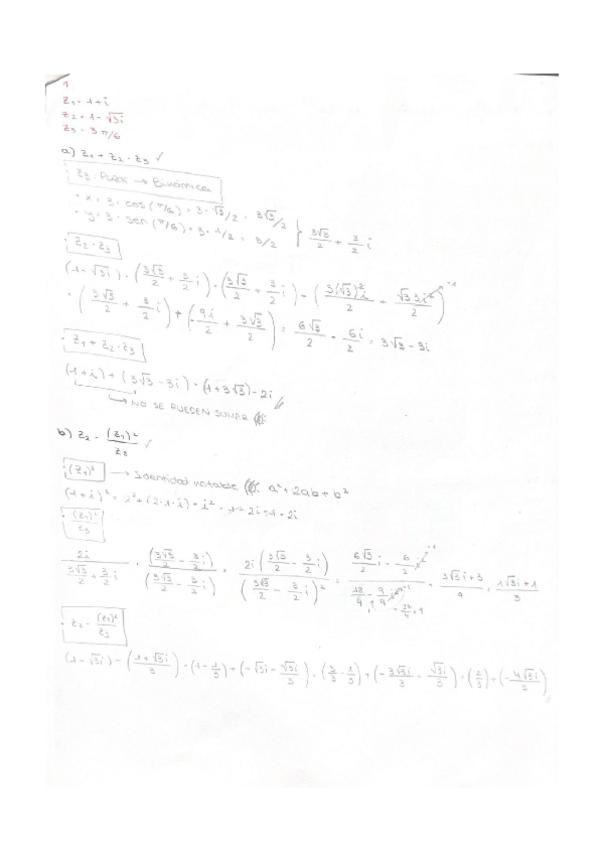 1
z₁ = 1+i
z₂ = 1-√3i
z₃ = 3 π/6
a) z₁ + z₂ · z₃ ✓
· z₃ · Polar → Binómica
· x = 3 · cos(π/6) = 3 · √3/2 = 3√3/2
· y = 3 · sen(π/6) = 3 · 1/2 = 3/2 } 3√3/2 + 3/2 i
· z₂ · z₃
(1-√3i) · (3√3/2 + 3/2 i) = (3√3/2 + 3/2 i) - (3(√3)²i/2 + √3 3i²/2) -1
= (3√3/2 + 3/2 i) + (-9i/2 + 3√3/2) = 6√3/2 - 6i/2 = 3√3 - 3i
· z₁ + z₂ · z₃
(1+i) + (3√3 - 3i) = (1+3√3) - 2i
→ NO SE PUEDEN SUMAR
b) z₂ - (z₁)²/z₃ ✓
· (z₁)² → Identidad notable a² + 2ab + b²
(1+i)² = 1² + (2·1·i) + i² = 1 + 2i - 1 = 2i
· (z₁)²/z₃
2i / (3√3/2 + 3/2 i) · (3√3/2 - 3/2 i) / (3√3/2 - 3/2 i) = 2i (3√3/2 - 3/2 i) / (3√3/2 - 3/2 i)² = 6√3/2 i - 6/2 i² -1 = √3i + 1 / 3
· z₂ - (z₁)²/z₃
(1-√3i) - (1+√3i / 3) = (1 - 1/3) + (-√3i - √3i/3) = (3/3 - 1/3) + (-3√3i/3 - √3i/3) = (2/3) + (-4√3i/3)